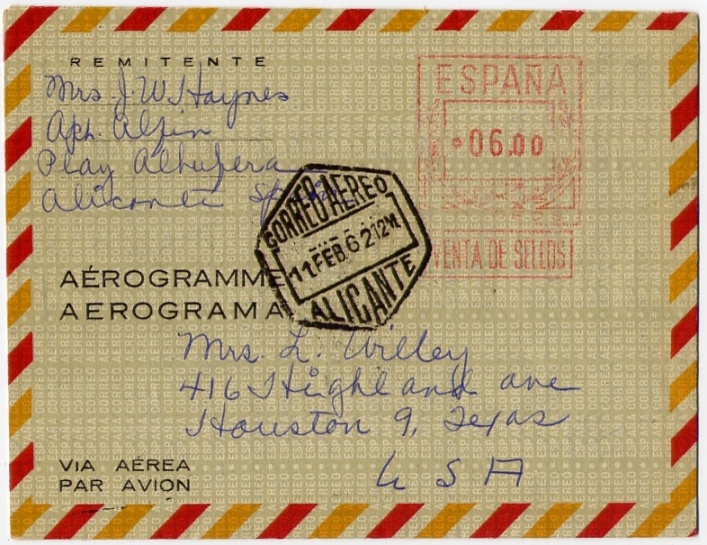 REMITENTE
Mrs J. W. Haynes
Apt. Alpin
Play Albufera
Alicante Spain
ESPAÑA
06.00
VENTA DE SELLOS
CORREO AEREO
11.FEB.62 12M.
ALICANTE
AÉROGRAMME
AEROGRAMA
Mrs. L. Willey
416 Highland ave
Houston 9, Texas
U S A
VIA AÉREA
PAR AVION